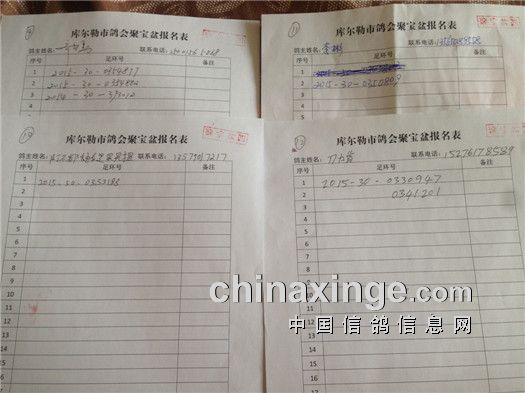 库尔勒市鸽会聚宝盆报名表
鸽主姓名: 联系电话:
序号 足环号 备注
1 2015-30-0354877
2 2015-30-
3 2014-30-
4
5
6
11
库尔勒市鸽会聚宝盆报名表
鸽主姓名: 李 联系电话:
序号 足环号 备注
1
2 2015-30-0350809
3
4
5
库尔勒市鸽会聚宝盆报名表
鸽主姓名: 联系电话: 13579017217
序号 足环号 备注
1 2015-30-0353185
2
3
4
5
6
7
8
9
10
11
12
13
14
15
16
17
12
库尔勒市鸽会聚宝盆报名表
鸽主姓名: 联系电话: 15276178589
序号 足环号 备注
1 2015-30-0330947
2 0341201
3
4
5
6
7
8
9
10
11
12
13
14
15
16
17
chinaxinge.com
中国信鸽信息网